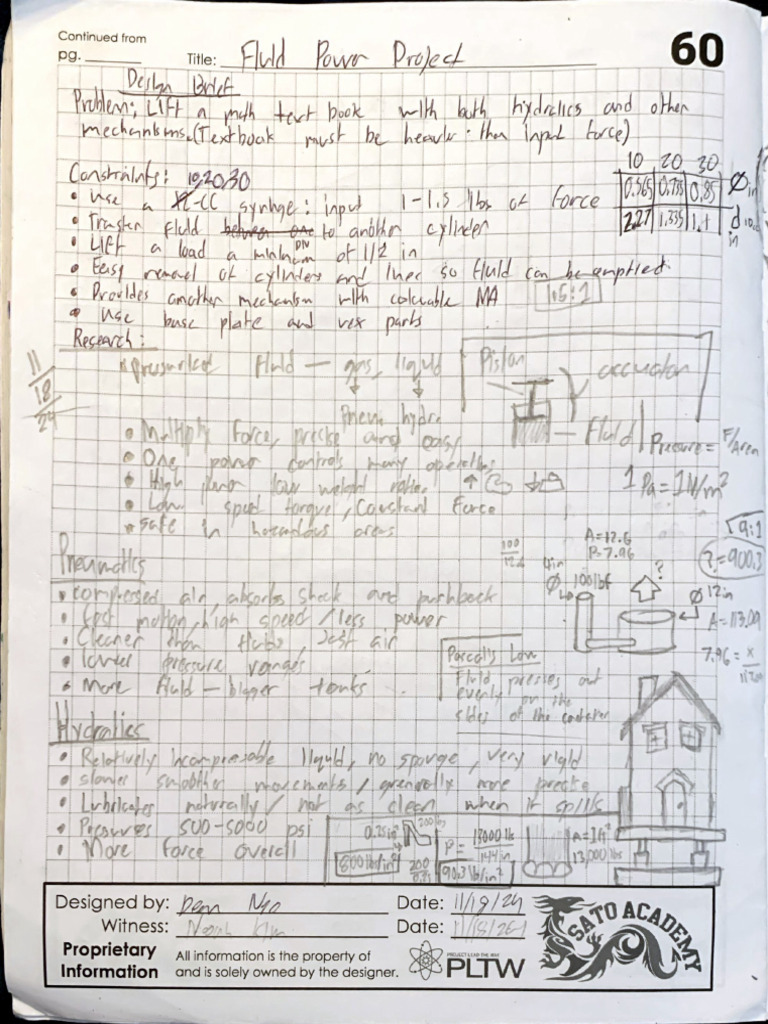 Continued from
pg.
Title: Fluid Power Project
60
Design Brief
Problem: Lift a math text book with both hydralics and other
mechanisms. (Textbook must be heavier than input force)
Constraints: 10,20,30
• Use a CC syringe: input 1-1.5 lbs of force
• Transfer fluid between one to another cylinder
• Lift a load a minimum of 1/2 in
• Easy removal of cylinders and lines so fluid can be emptied
• Provides another mechanism with MA 1.5:1
• Use base plate and vex parts
10 20 30
0.565 0.735 0.85 Ø in
2.27 1.335 1.1 d
in
Research:
11/18/24
Fluid — gas, liquid
Pneu hydra
• Multiply Force, precise and easy
• One power controls many operations
• High power low weight ratio
• Low speed torque, Constant Force
• safe in hazardous areas
Piston
accuator
Fluid
Pressure = F/Area
1 Pa = 1N/m²
9:1
? = 900.3
Pneumatics
• compressed air, absorbs shock and pushback
• fast motion, high speed / less power
• Cleaner than fluids, Just air
• lower pressure ranges
• More fluid — bigger tanks
A=12.6
P=7.96
4in
Ø
100lbf
?
Ø 12in
A=113.09
7.96 = x
Pascal's Law
Fluid presses out
evenly on the
sides of the container
Hydralics
• Relatively incompressable liquid, no sponge, very rigid
• slower smoother movements / generally more precise
• Lubricates naturally / not as clean when it spills
• Pressures 500-5000 psi
• More force overall
0.25in²
200 lbs
800 lbs/in²
200
0.25
P = 13000 lb
144in
90.3 lb/in²
A=1ft²
13,000 lbs
Designed by:
Date: 11/19/24
Witness: Noah Kim
Date:
Proprietary
Information
All information is the property of
and is solely owned by the designer.
PROJECT LEAD THE WAY
PLTW
SATO ACADEMY